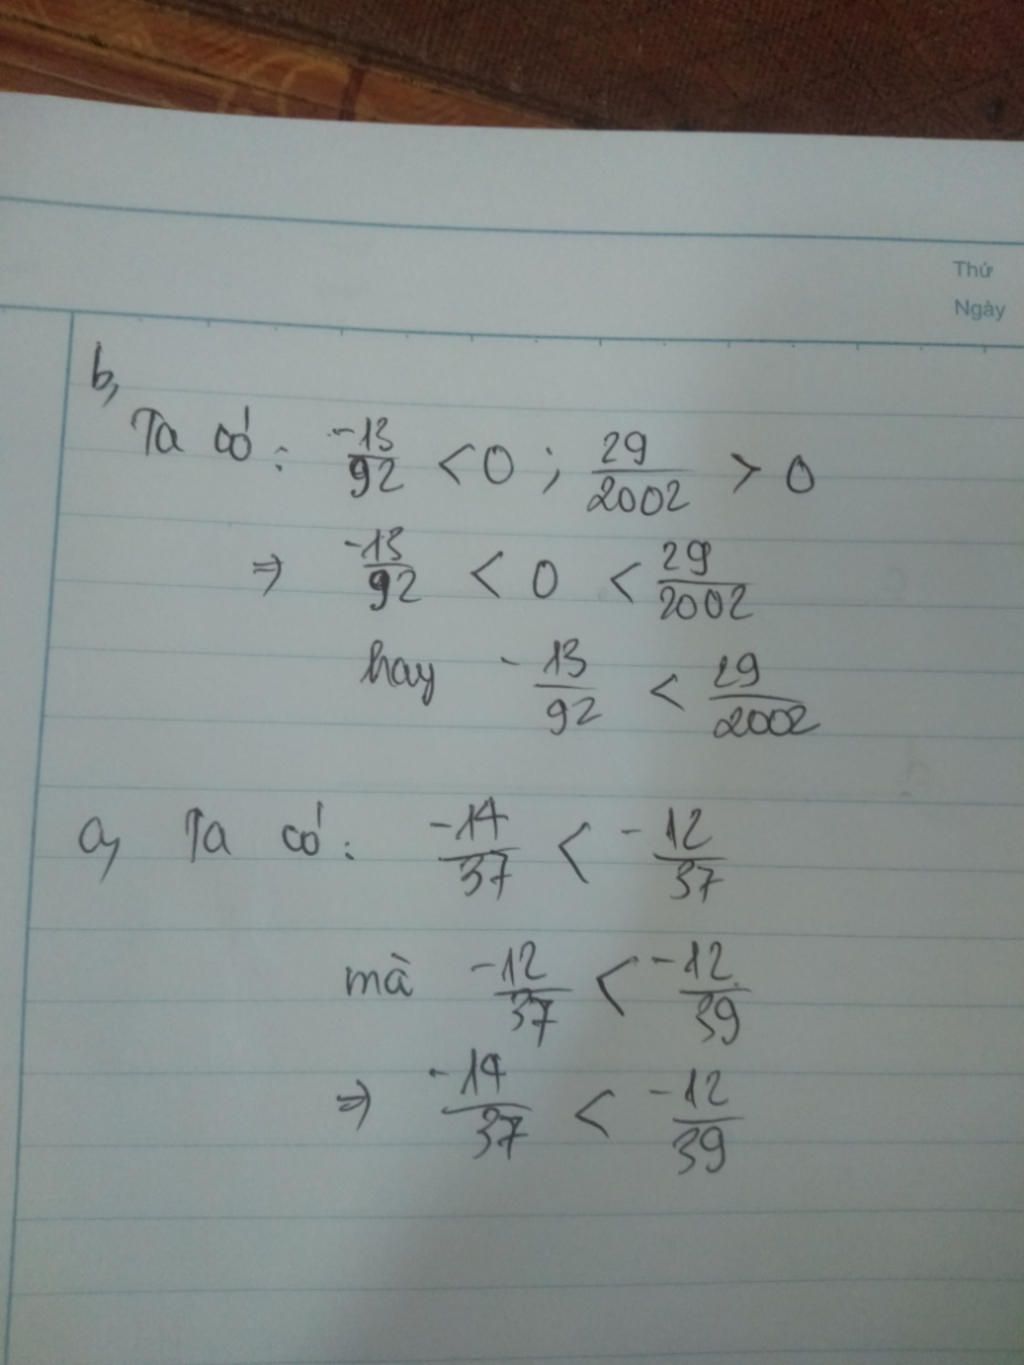 Thứ
Ngày
b,
Ta có: -13/92 < 0 ; 29/2002 > 0
⇒ -13/92 < 0 < 29/2002
hay -13/92 < 29/2002
a, Ta có: -14/37 < -12/37
mà -12/37 < -12/39
⇒ -14/37 < -12/39